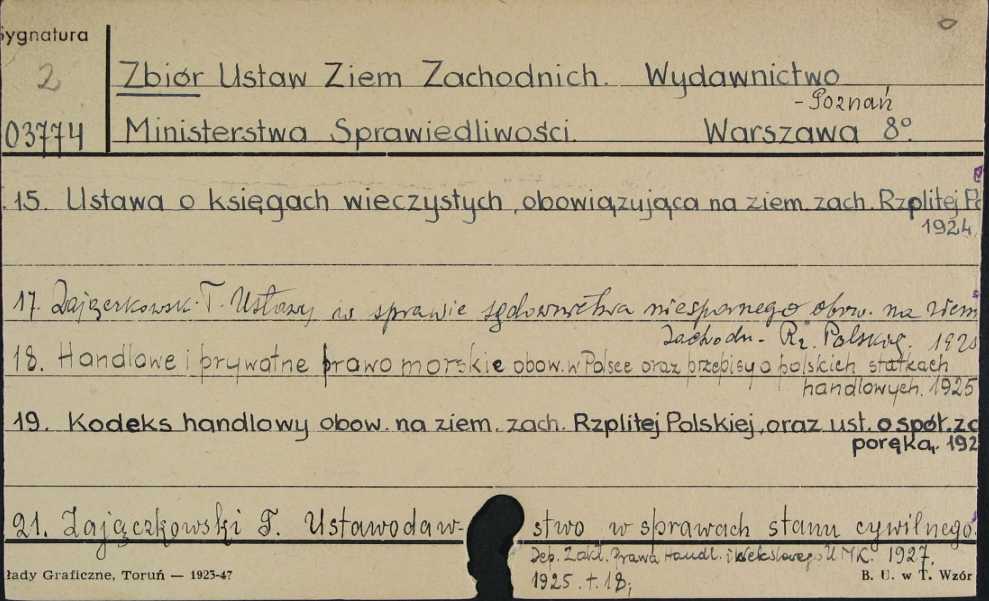 Sygnatura
2 Zbiór Ustaw Ziem Zachodnich. Wydawnictwo
- Poznań
03774 Ministerstwa Sprawiedliwości. Warszawa 8°.
15. Ustawa o księgach wieczystych, obowiązująca na ziem. zach. Rzplitej Po
1924.
17. Zajączkowsk. T. Ustawy w sprawie sądownictwa niespornego obow. na ziem
Zachodn- Rz. Polskiej. 192
18. Handlowe i prywatne prawo morskie obow. w Polsce oraz przepisy o polskich statkach
handlowych. 1925
19. Kodeks handlowy obow. na ziem. zach. Rzplitej Polskiej, oraz ust. o spół. za
poręką. 192
21. Zajączkowski F. Ustawodaw- stwo w sprawach stanu cywilnego.
Dep. Zakł. Prawa Handl. i Wekslowego U M K. 1927.
1925. t. 18;
łady Graficzne, Toruń — 1923-47
B. U. w T. Wzór